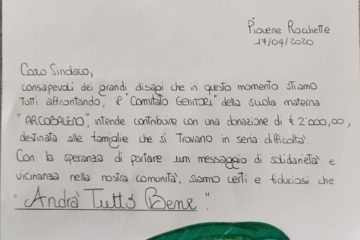 Piovene Rocchette
17/04/2020
Caro Sindaco,
consapevoli dei grandi disagi che in questo momento stiamo
tutti affrontando, il "Comitato GENITORI" della scuola materna
"ARCOBALENO", intende contribuire con una donazione di € 2'000,00,
destinata alle famiglie che si trovano in seria difficoltà.
Con la speranza di portare un messaggio di solidarietà e
vicinanza nella nostra comunità, siamo certi e fiduciosi che
"Andrà Tutto Bene"